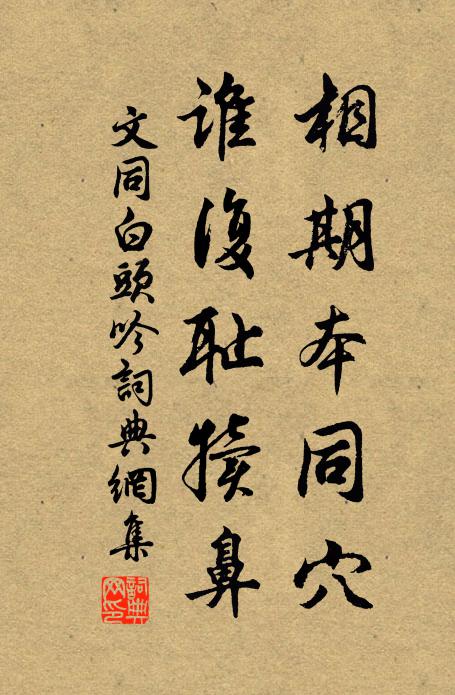 相期本同穴
谁復耻犢鼻
文同白頭吟詞典網集
詞典
网印